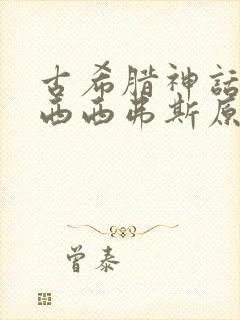 古希腊神话
西西弗斯原
曾泰